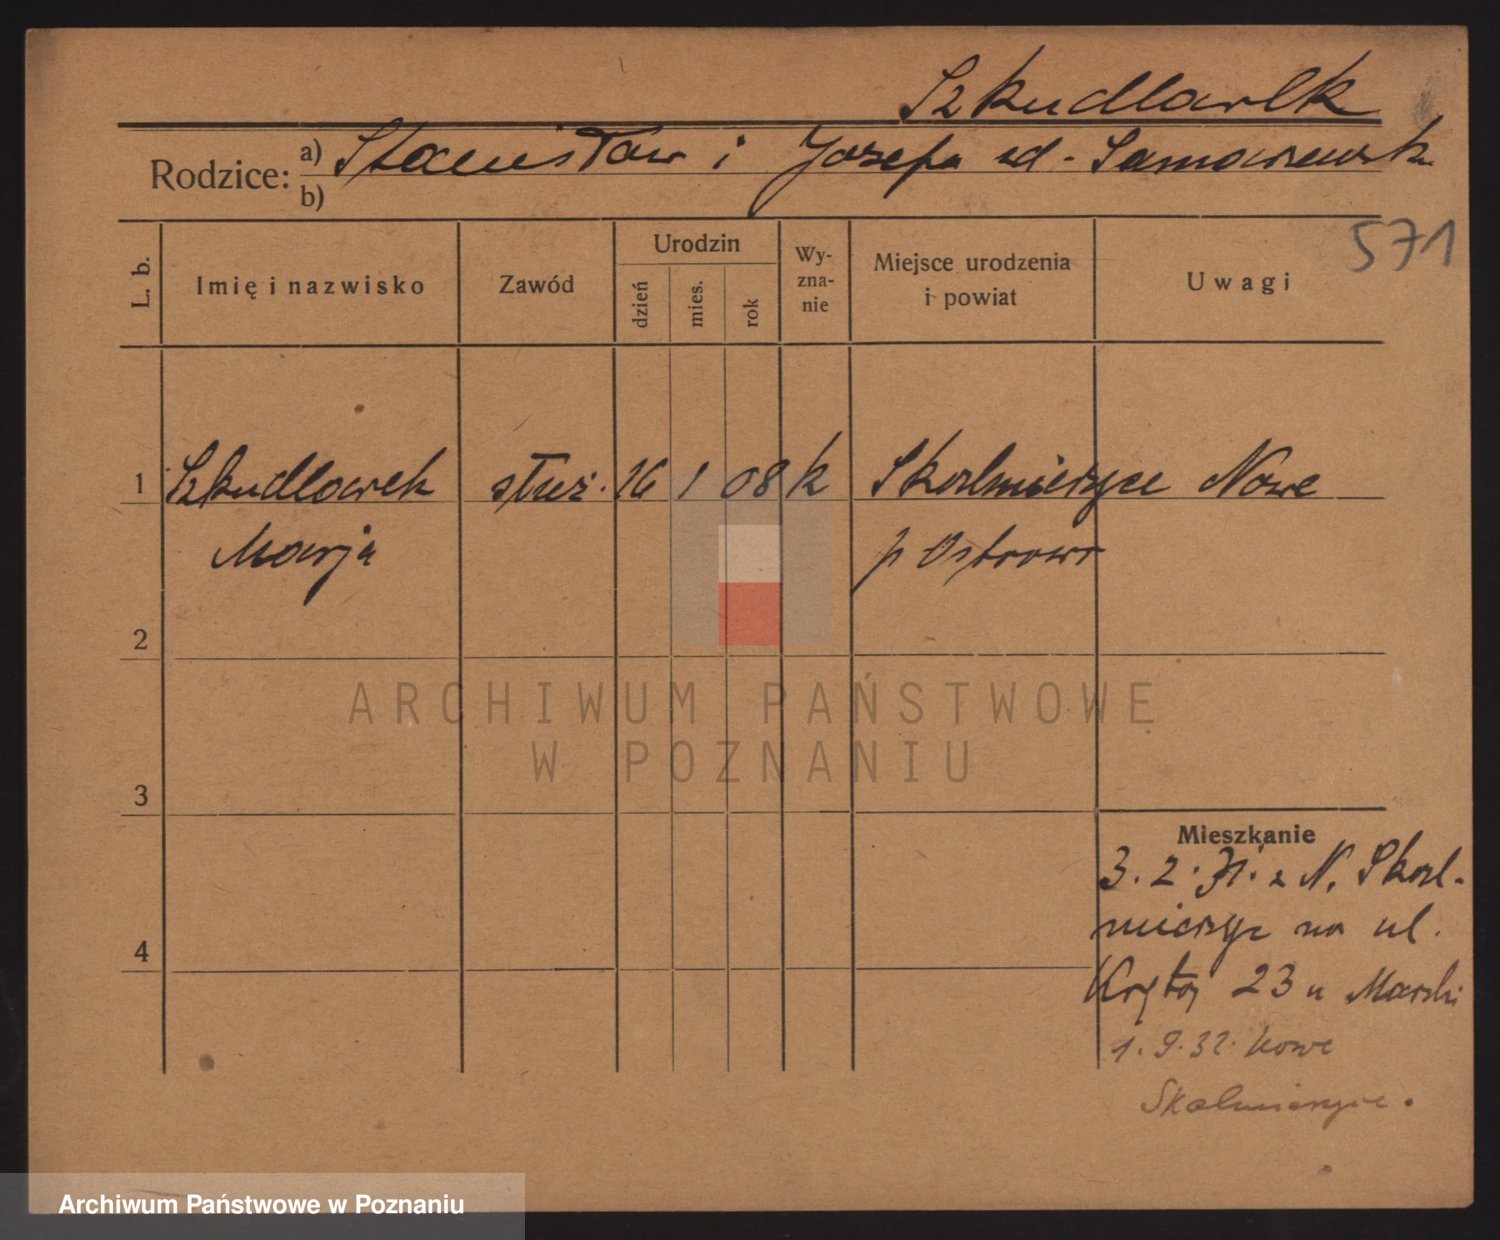 Szkudlarek
Rodzice: a) Stanisław i Józefa zd. Samarzewsk
b)
571
L. b.
Imię i nazwisko
Zawód
Urodzin
dzień
mies.
rok
Wy-
zna-
nie
Miejsce urodzenia
i powiat
Uwagi
1 Szkudlarek służ. 16 1 08 k Skalmierzyce Nowe
Marja p Ostrowo
2
3
4
Mieszkanie
3. 2. 31. z N. Skal-
mierzyc na ul.
Krętą 23 u Marski
1. 9. 32. Nowe
Skalmierzyce.
ARCHIWUM PAŃSTWOWE
W POZNANIU
Archiwum Państwowe w Poznaniu